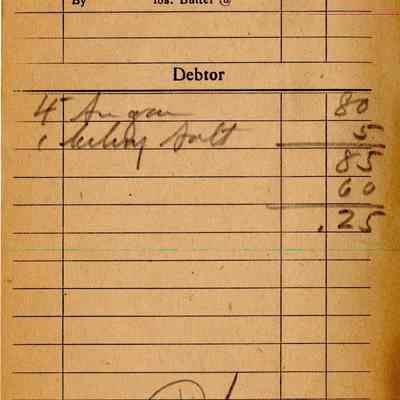 By lbs. Butter @
Debtor
4 Sugar 80
1 Celery Salt 5
85
60
.25